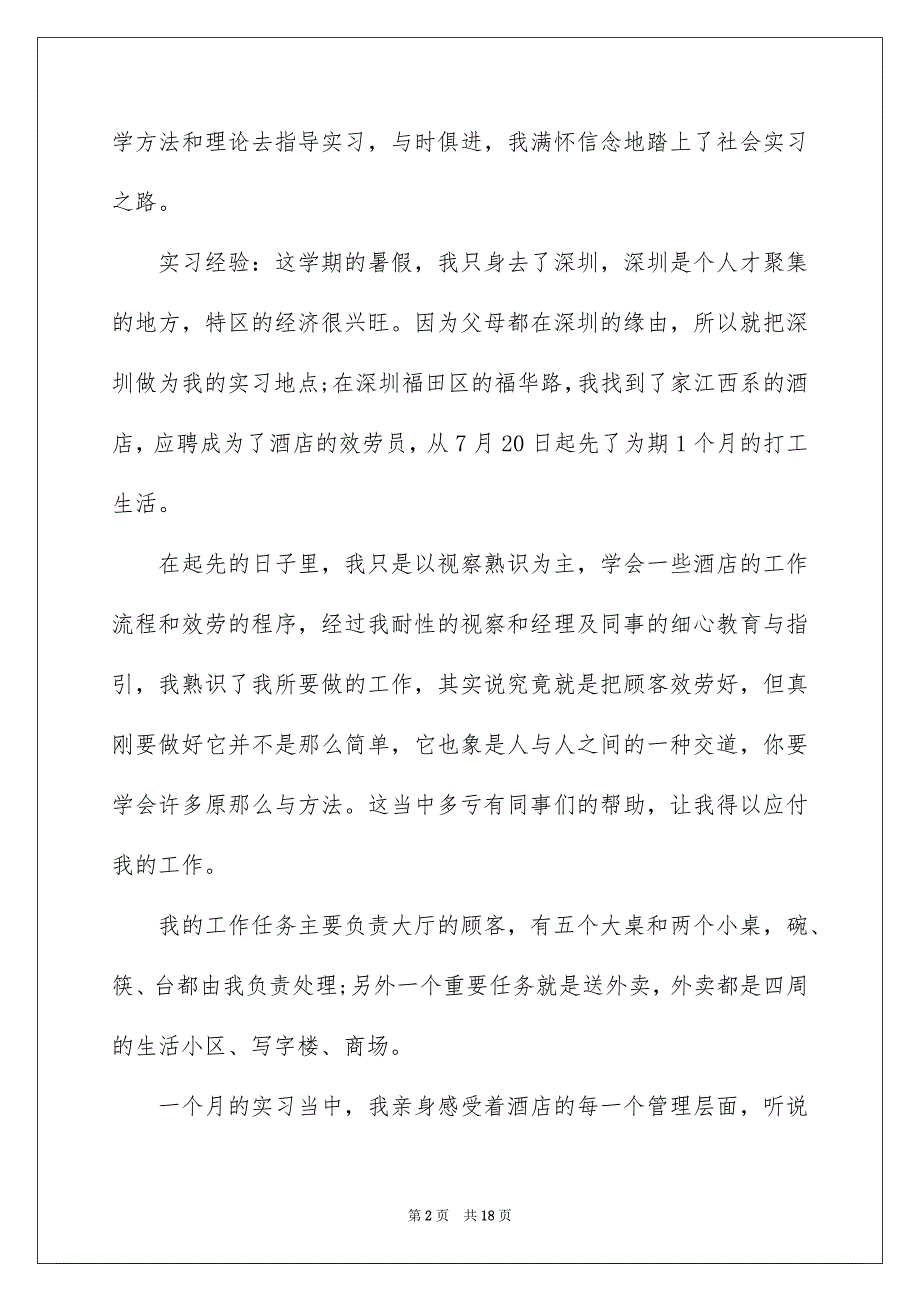 学方法和理论去指导实习，与时俱进，我满怀信念地踏上了社会实习
之路。
实习经验：这学期的暑假，我只身去了深圳，深圳是个人才聚集
的地方，特区的经济很兴旺。因为父母都在深圳的缘由，所以就把深
圳做为我的实习地点;在深圳福田区的福华路，我找到了家江西系的酒
店，应聘成为了酒店的效劳员，从 7 月 20 日起先了为期 1 个月的打工
生活。
在起先的日子里，我只是以视察熟识为主，学会一些酒店的工作
流程和效劳的程序，经过我耐性的视察和经理及同事的细心教育与指
引，我熟识了我所要做的工作，其实说究竟就是把顾客效劳好，但真
刚要做好它并不是那么简单，它也象是人与人之间的一种交道，你要
学会许多原那么与方法。这当中多亏有同事们的帮助，让我得以应付
我的工作。
我的工作任务主要负责大厅的顾客，有五个大桌和两个小桌，碗、
筷、台都由我负责处理;另外一个重要任务就是送外卖，外卖都是四周
的生活小区、写字楼、商场。
一个月的实习当中，我亲身感受着酒店的每一个管理层面，听说
第 2 页 共 18 页